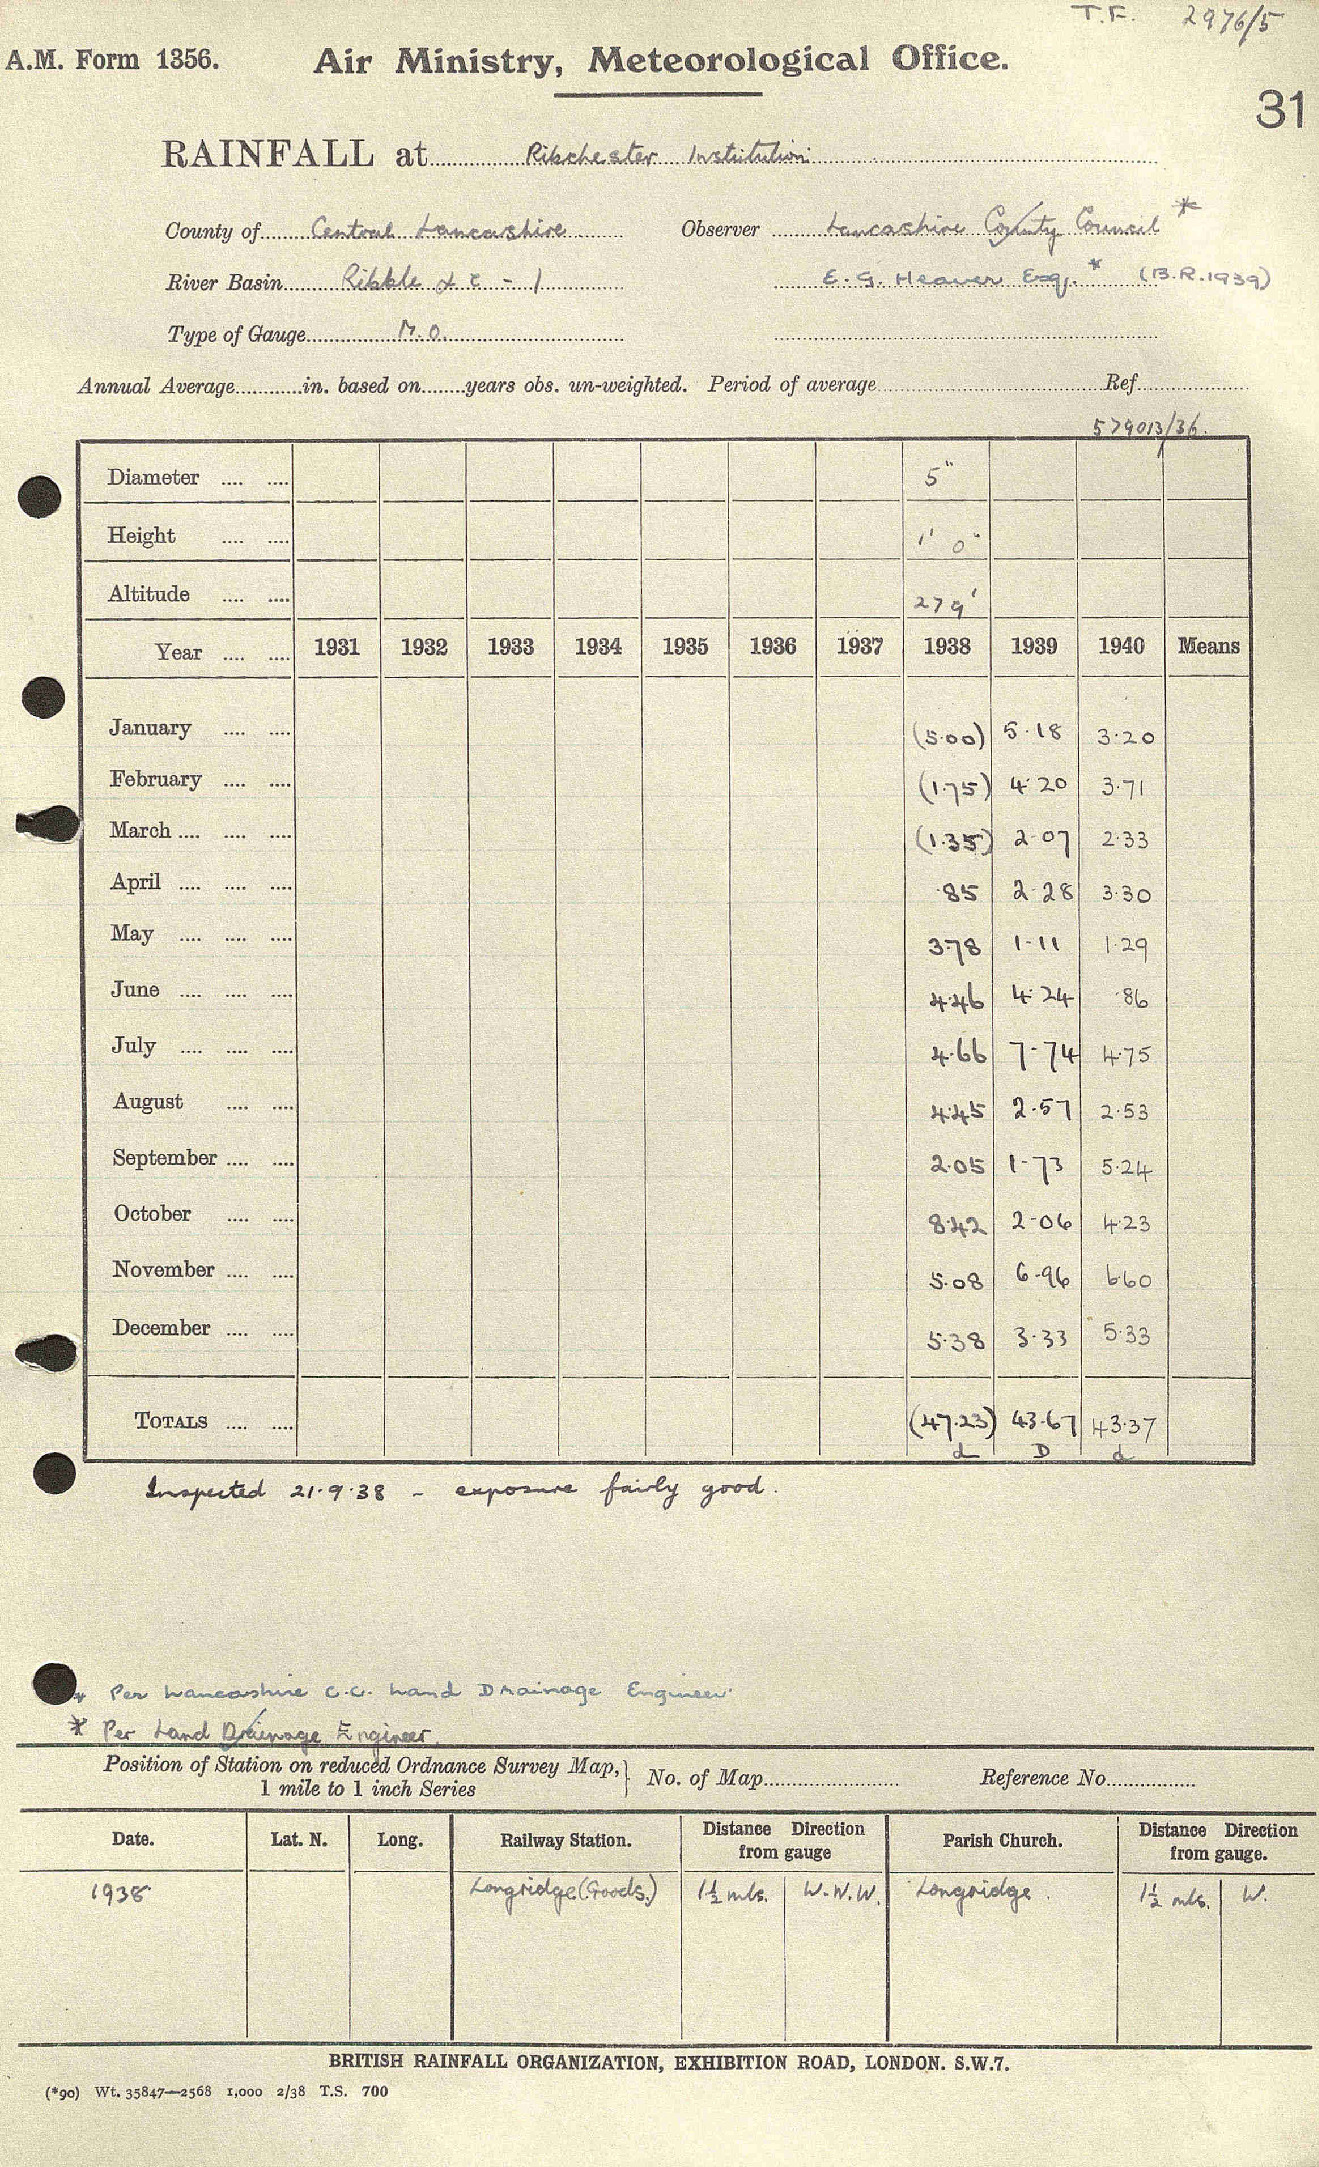 T.F. 2976/5
A.M. Form 1356. Air Ministry, Meteorological Office.
31
RAINFALL at Ribchester Institution
County of Central Lancashire Observer Lancashire County Council *
River Basin Ribble &c - 1 E. G. Heaver Esq. * (B.R. 1939)
Type of Gauge M.O.
Annual Average in. based on years obs. un-weighted. Period of average Ref.
579013/36.
Diameter .... .... 5"
Height .... .... 1' 0"
Altitude .... .... 279'
Year .... .... 1931 1932 1933 1934 1935 1936 1937 1938 1939 1940 Means
January .... .... (5.00) 5.18 3.20
February .... .... (1.75) 4.20 3.71
March .... .... .... (1.35) 2.07 2.33
April .... .... .... .85 2.28 3.30
May .... .... .... 3.78 1.11 1.29
June .... .... .... 4.46 4.24 .86
July .... .... .... 4.66 7.74 4.75
August .... .... 4.45 2.57 2.53
September .... .... 2.05 1.73 5.24
October .... .... 8.42 2.06 4.23
November .... .... 5.08 6.96 6.60
December .... .... 5.38 3.33 5.33
TOTALS .... .... (47.23) 43.67 43.37
d D d
Inspected 21.9.38 - exposure fairly good.
* Per Lancashire C.C. Land Drainage Engineer
* Per Land Drainage Engineer.
Position of Station on reduced Ordnance Survey Map, 1 mile to 1 inch Series } No. of Map Reference No.
Date. Lat. N. Long. Railway Station. Distance Direction from gauge Parish Church. Distance Direction from gauge.
1938 Longridge (Goods.) 1½ mls. W.N.W. Longridge. 1½ mls. W.
BRITISH RAINFALL ORGANIZATION, EXHIBITION ROAD, LONDON. S.W.7.
(*90) Wt. 35847—2568 1,000 2/38 T.S. 700